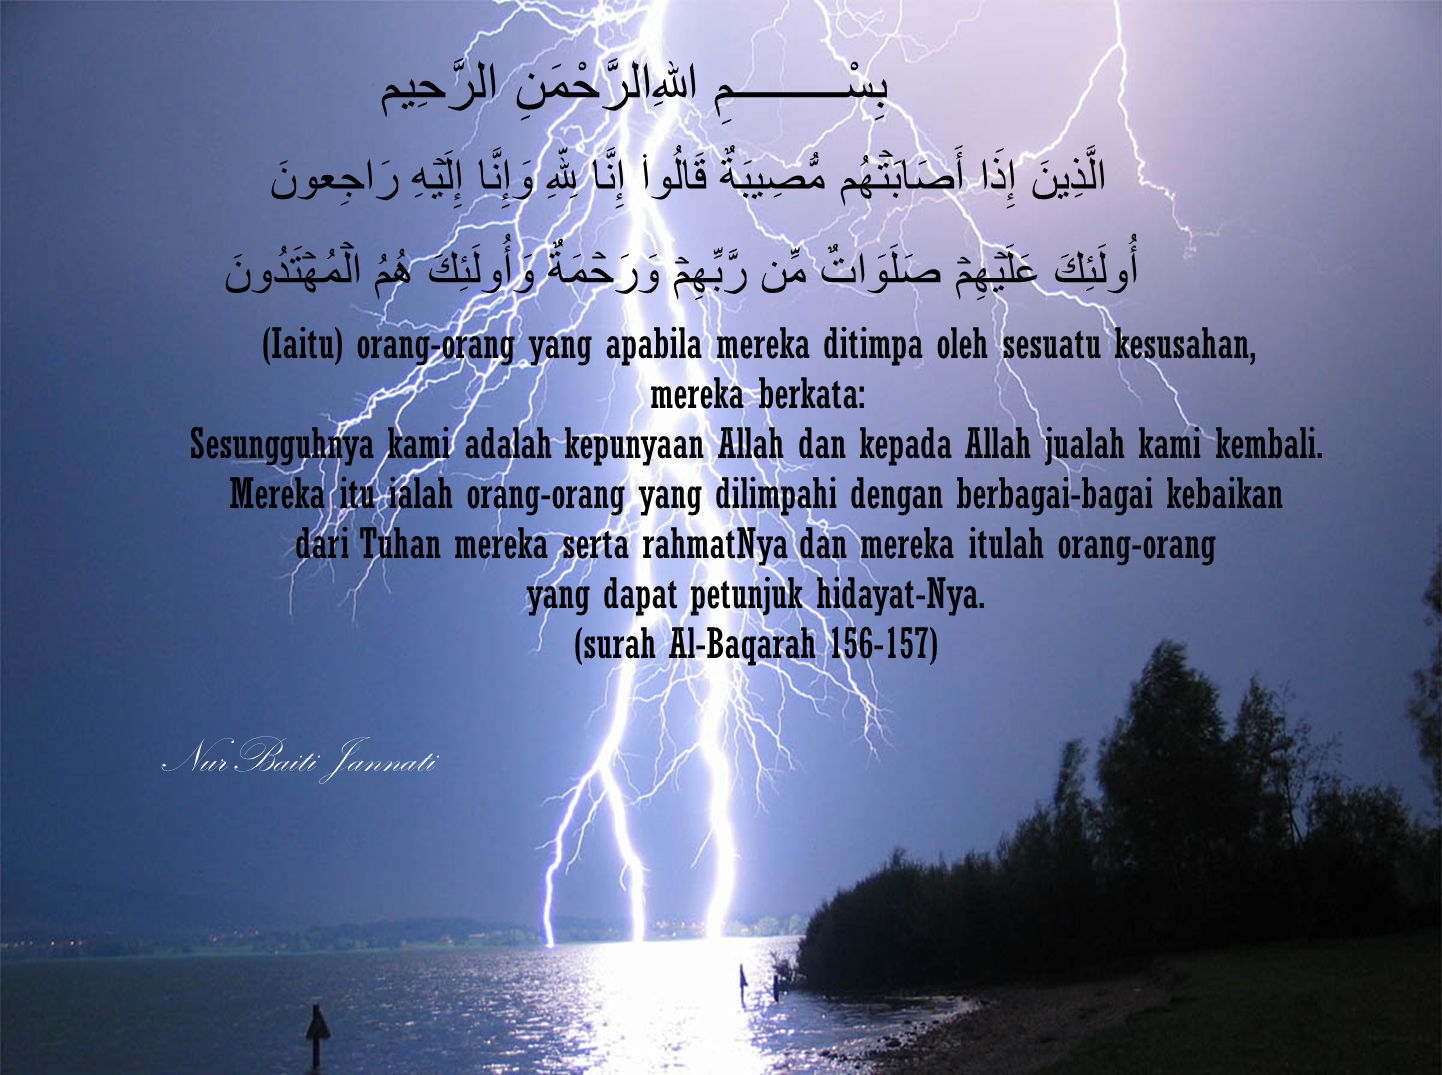 بِسْــــــــمِ اللهِ الرَّحْمَنِ الرَّحِيم
الَّذِينَ إِذَا أَصَابَتْهُم مُّصِيبَةٌ قَالُواْ إِنَّا لِلّهِ وَإِنَّا إِلَيْهِ رَاجِعونَ
أُولَئِكَ عَلَيْهِمْ صَلَوَاتٌ مِّن رَّبِّهِمْ وَرَحْمَةٌ وَأُولَئِكَ هُمُ الْمُهْتَدُونَ
(Iaitu) orang-orang yang apabila mereka ditimpa oleh sesuatu kesusahan,
mereka berkata:
Sesungguhnya kami adalah kepunyaan Allah dan kepada Allah jualah kami kembali.
Mereka itu ialah orang-orang yang dilimpahi dengan berbagai-bagai kebaikan
dari Tuhan mereka serta rahmatNya dan mereka itulah orang-orang
yang dapat petunjuk hidayat-Nya.
(surah Al-Baqarah 156-157)
Nur Baiti Jannati